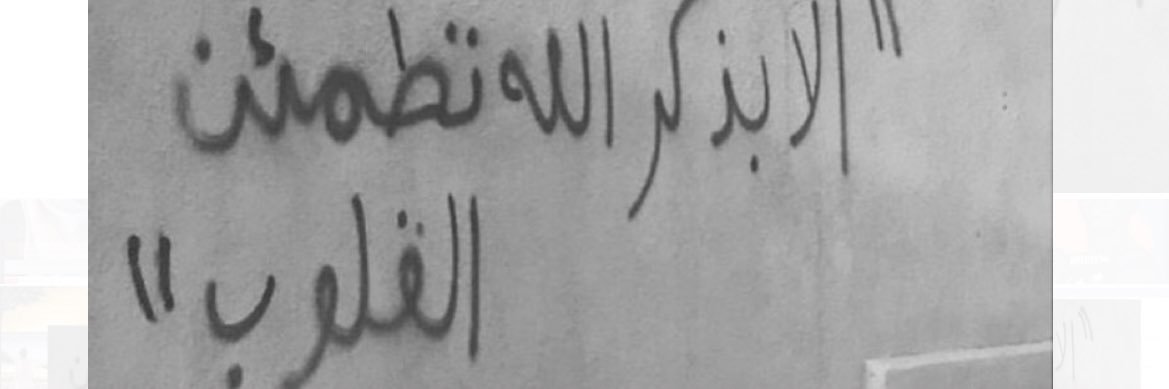 "الا بذكر الله تطمئن
القلوب"